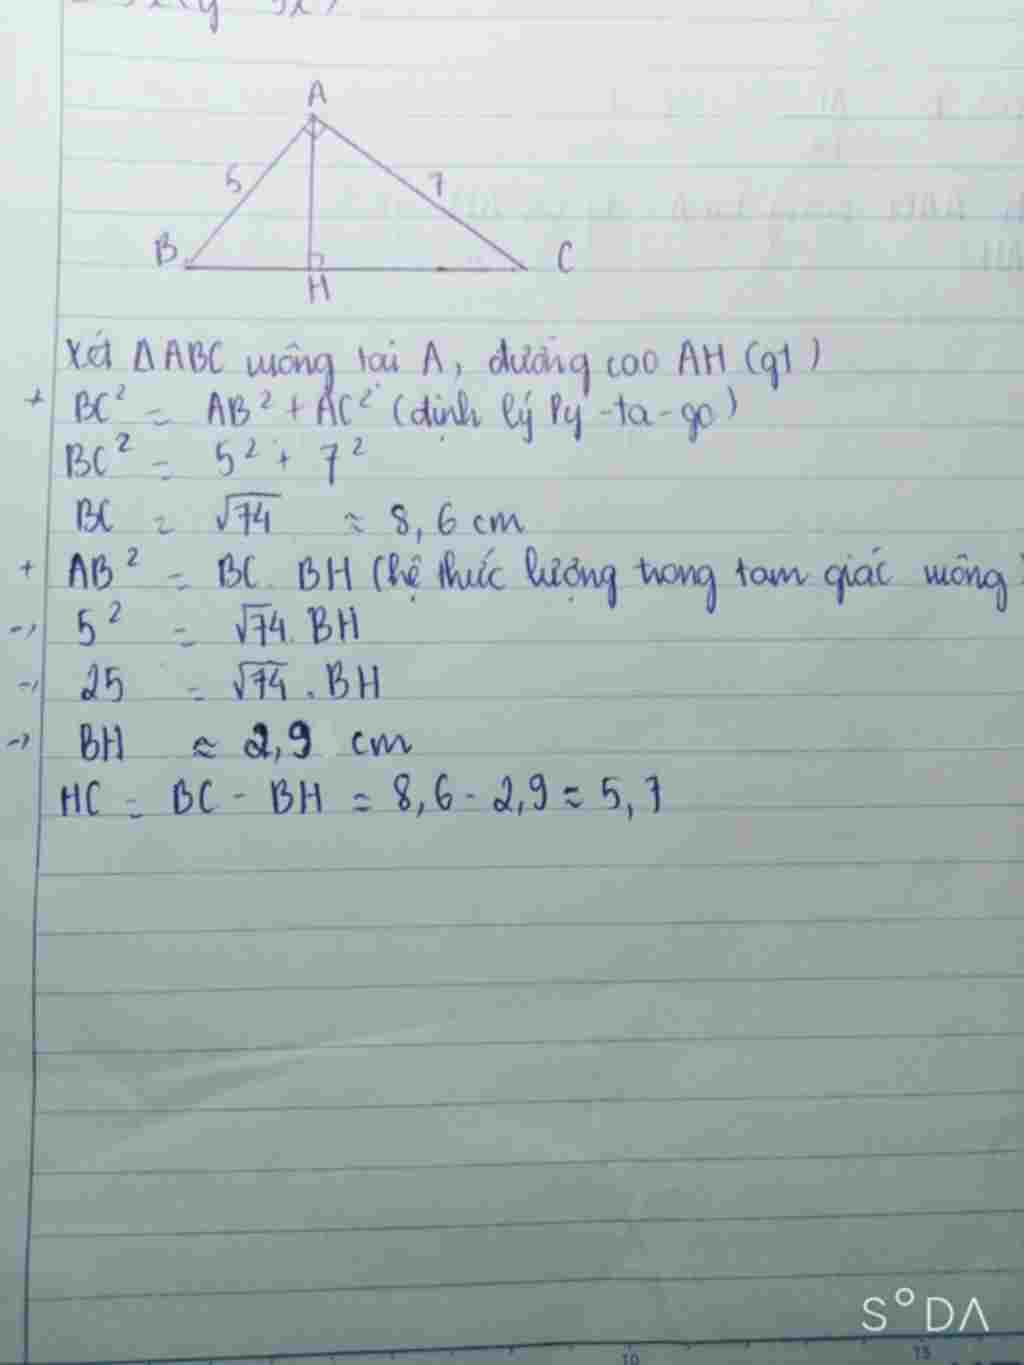 A
5
7
B
H
C
Xét ΔABC vuông tại A, đường cao AH (gt)
+ BC² = AB² + AC² (định lý Py-ta-go)
BC² = 5² + 7²
BC = √74 ≈ 8,6 cm
+ AB² = BC . BH (hệ thức lượng trong tam giác vuông)
→ 5² = √74 . BH
→ 25 = √74 . BH
→ BH ≈ 2,9 cm
HC = BC - BH = 8,6 - 2,9 ≈ 5,7
S°DA
10
15